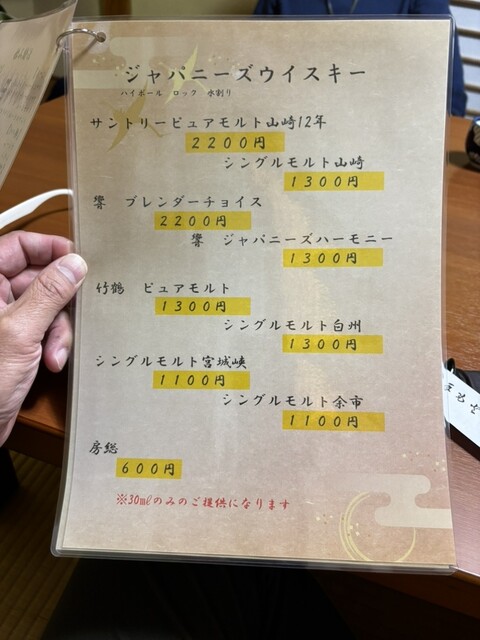 ジャパニーズウイスキー
ハイボール ロック 水割り
サントリーピュアモルト山崎12年
2200円
シングルモルト山崎
1300円
響 ブレンダーチョイス
2200円
響 ジャパニーズハーモニー
1300円
竹鶴 ピュアモルト
1300円
シングルモルト白州
1300円
シングルモルト宮城峡
1100円
シングルモルト余市
1100円
房総
600円
※30mlのみのご提供になります